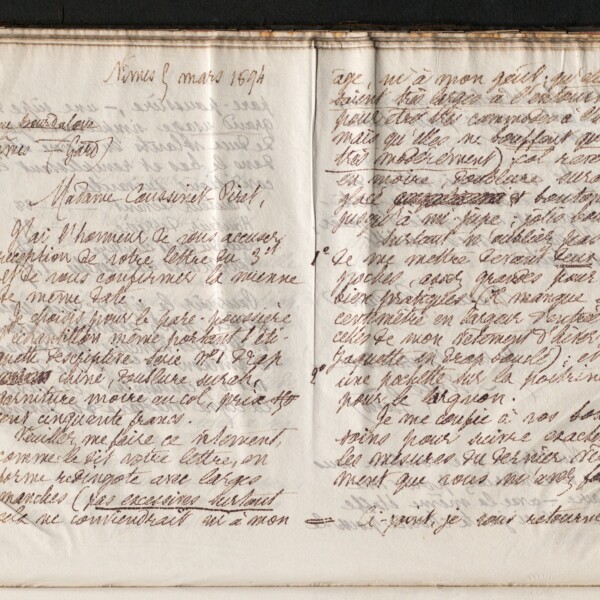 Nîmes 5 mars 1894
Bourdaloue
(Gard)
Madame Coussinet-Piret,
J'ai l'honneur de vous accuser
réception de votre lettre du 3 ct
et de vous confirmer la mienne
de même date.
Je choisis pour le pare-poussière
l'échantillon même portant l'éti-
quette descriptive série No 1 drap
chiné, doublure surah,
garniture moire au col, prix
cent cinquante francs.
Veuillez me faire ce vêtement,
comme le dit votre lettre, en
forme redingote avec larges
manches (pas excessives surtout
cela ne conviendrait ni à mon
âge, ni à mon goût; qu'elles
soient très larges à l'entour
pour être très commodes à
mais qu'elles ne bouffent que
très modérément) col
en moire, doublure surah
glacé boutons
jusqu'à mi-jupe; jolis
Surtout n'oubliez pas
1° de me mettre devant deux
poches, assez grandes pour
bien pratiques (il manque
centimètre en largeur d'entrée
celles de mon vêtement d'hiver
jaquette en drap bouclé); et
2° une pochette sur la poitrine
pour le lorgnon.
Je me confie à vos bons
soins pour suivre exactement
les mesures du dernier vête-
ment que vous m'avez
Ci-joint, je vous retourne